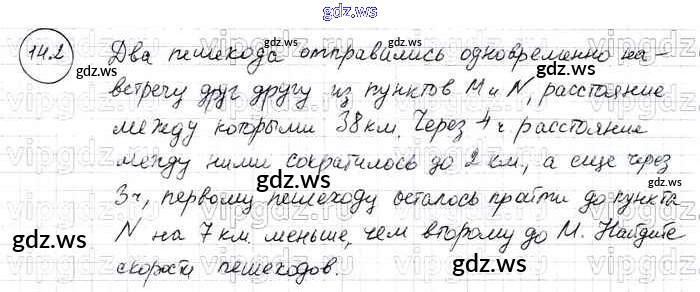 gdz.ws
14.2 Два пешехода отправились одновременно на-
встречу друг другу из пунктов M и N, расстояние
между которыми 38 км. Через 4 ч расстояние
между ними сократилось до 2 км, а еще через
3 ч, первому пешеходу осталось пройти до пункта
N на 7 км. меньше, чем второму до M. Найдите
скорости пешеходов.